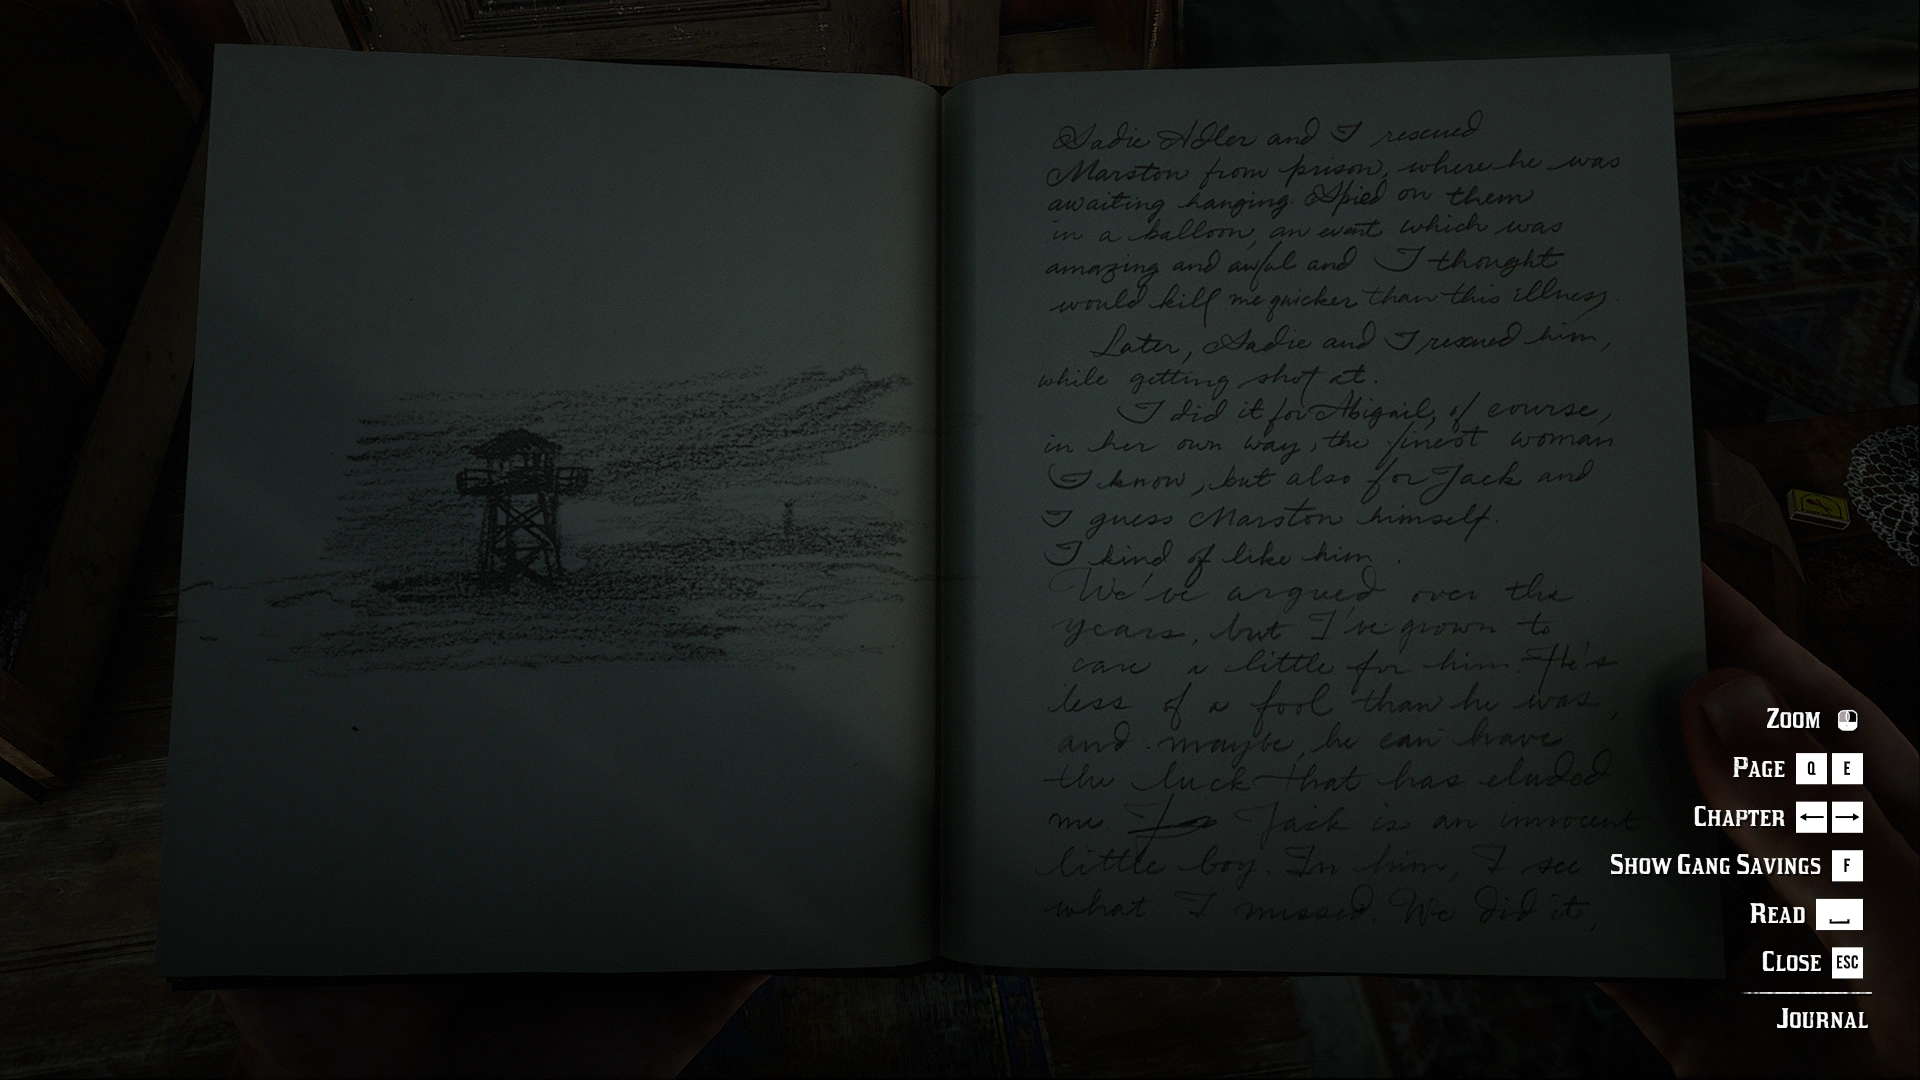 Sadie Adler and I rescued
Marston from prison, where he was
awaiting hanging. Spied on them
in a balloon, an event which was
amazing and awful and I thought
would kill me quicker than this illness.
Later, Sadie and I rescued him,
while getting shot at.
I did it for Abigail, of course,
in her own way, the finest woman
I know, but also for Jack and
I guess Marston himself.
I kind of like him.
We've argued over the
years, but I've grown to
care a little for him. He's
less of a fool than he was,
and maybe he can have
the luck that has eluded
me Jack is an innocent
little boy. In him, I see
what I missed. We did it,
ZOOM
PAGE Q E
CHAPTER ← →
SHOW GANG SAVINGS F
READ
CLOSE ESC
JOURNAL